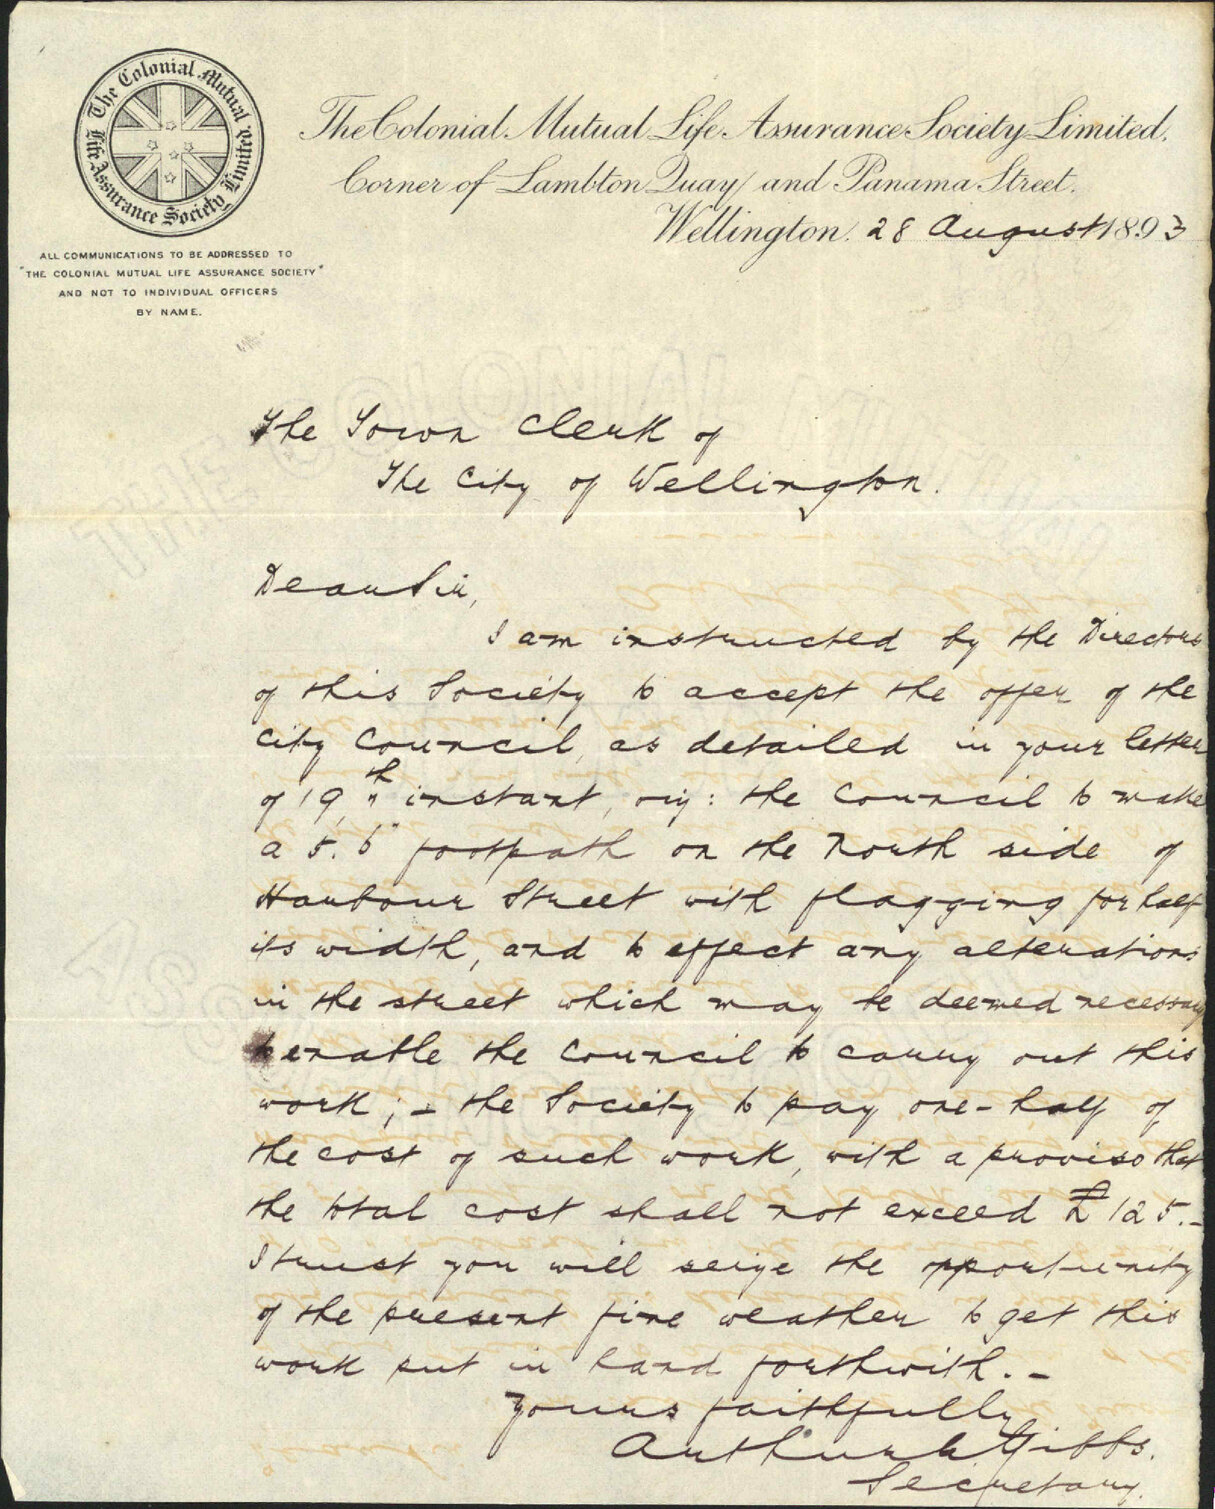 The Colonial Mutual Life Assurance Society Limited
The Colonial Mutual Life Assurance Society Limited.
Corner of Lambton Quay and Panama Street.
Wellington. 28 August 1893
ALL COMMUNICATIONS TO BE ADDRESSED TO
"THE COLONIAL MUTUAL LIFE ASSURANCE SOCIETY"
AND NOT TO INDIVIDUAL OFFICERS
BY NAME.
The Town Clerk of
The City of Wellington.
Dear Sir,
I am instructed by the Directors
of this Society to accept the offer of the
City Council, as detailed in your letter
of 19th instant, viz: the Council to make
a 5.6" footpath on the North side of
Harbour Street with flagging for half
its width, and to effect any alterations
in the street which may be deemed necessary
to enable the Council to carry out this
work; – the Society to pay one-half of
the cost of such work, with a proviso that
the total cost shall not exceed £125.–
I trust you will seize the opportunity
of the present fine weather to get this
work put in hand forthwith.–
Yours faithfully
Arthur Gibbs.
Secretary.